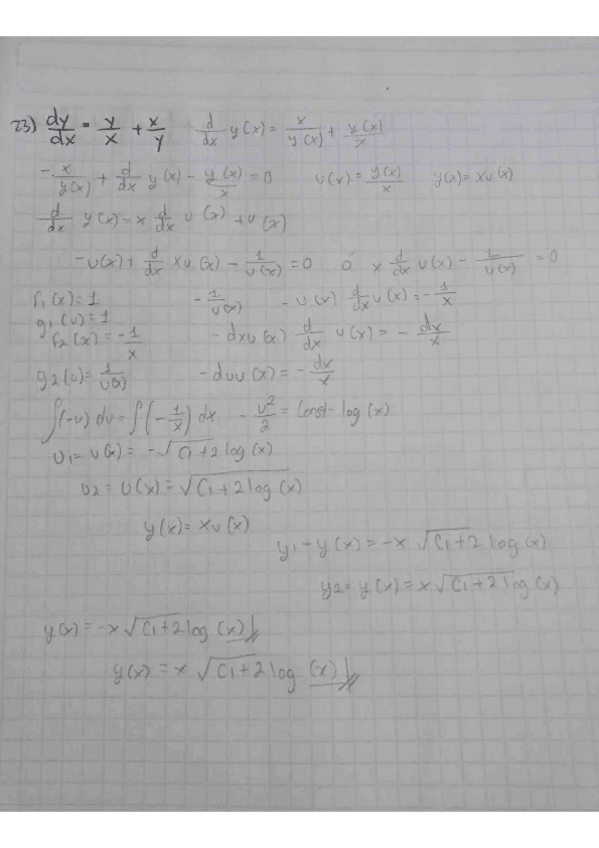 23) dy/dx = y/x + x/y   d/dx y(x) = x/y(x) + y(x)/x
- x/y(x) + d/dx y(x) - y(x)/x = 0   u(x) = y(x)/x   y(x) = xu(x)
d/dx y(x) = x d/dx u(x) + u(x)
-u(x) + d/dx xu(x) - 1/u(x) = 0   ó   x d/dx u(x) - 1/u(x) = 0
f1(x) = 1   - 1/u(x)   - u(x) d/dx u(x) = - 1/x
g1(u) = 1
f2(x) = - 1/x   - dxu(x) d/dx u(x) = - dx/x
g2(u) = 1/u(x)   - duu(x) = - dx/x
∫(-u) du = ∫(- 1/x) dx   - u²/2 = Const - log(x)
u1 = u(x) = -√C1+2log(x)
u2 = u(x) = √C1+2log(x)
y(x) = xu(x)
y1 = y(x) = -x √C1+2log(x)
y2 = y(x) = x √C1+2log(x)
y(x) = -x √C1+2log(x)
y(x) = x √C1+2log(x)